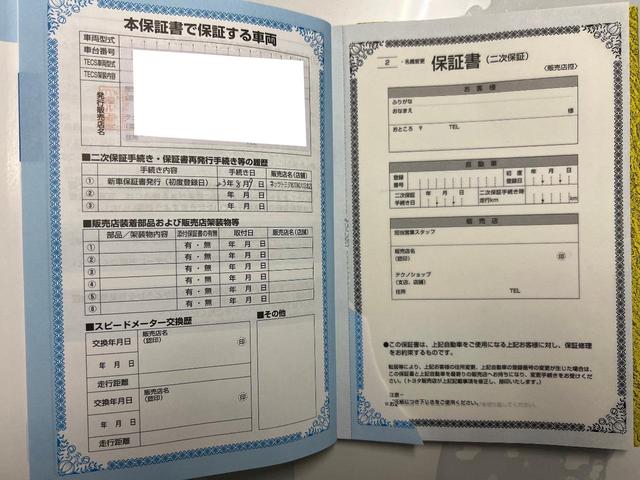 本保証書で保証する車両
車両型式
車台番号
TECS車両型式
TECS架装内容
発行販売店名
■二次保証手続き・保証書再発行手続き等の履歴
手続き内容 手続き日 販売店名(店舗)
① 新車保証書発行(初度登録日) 3年8月7日
② 年 月 日
③ 年 月 日
■販売店装着部品および販売店架装物等
部品/架装物内容 添付保証書の有無 取付日 販売店名(店舗)
① 有・無 年 月 日
② 有・無 年 月 日
③ 有・無 年 月 日
④ 有・無 年 月 日
⑤ 有・無 年 月 日
⑥ 有・無 年 月 日
■スピードメーター交換歴
■その他
交換年月日 販売店名(認印) 印
年 月 日
走行距離
交換年月日 販売店名(認印) 印
年 月 日
走行距離
2 ・名義変更 保証書(二次保証) <販売店控>
お客様
ふりがな
おなまえ 様
おところ 〒 TEL
自動車
登録番号 初度登録日 年 月 日
二次保証手続き日 年 月 日 二次保証手続き時走行km km
販売店
担当営業スタッフ
販売店名(認印) 印
テクノショップ(支店、店舗)
住所 TEL
●この保証書は、上記自動車をご使用になる上記お客様に対し、保証修理
をお約束するものです。
転居等により、上記お客様の住所変更、上記自動車の登録番号の変更が生じた場合は、
この保証書と上記自動車を最寄りの販売店へお持ちになり、変更手続きをお受けくだ
さい。(トヨタ販売店が上記記載事項を修正し、捺印いたします。)
注意－